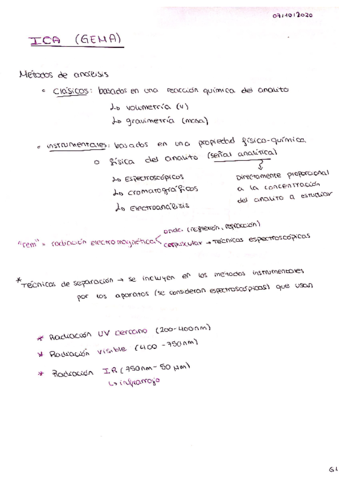 07/10/2020
ICA (GEMA)
Métodos de análisis
• Clásicos: basados en una reacción química del analito
↳ volumetría (v)
↳ gravimetría (masa)
• instrumentales: basados en una propiedad físico-química
o física del analito (señal analítica)
↳ Espectroscópicos
↳ cromatográficos
↳ Electroanálisis
Directamente proporcional
a la concentración
del analito a estudiar
"rem" = radiación electromagnética
onda (reflexión, refracción)
corpuscular → Técnicas espectroscópicas
* Técnicas de separación → se incluyen en los métodos instrumentales
por los aparatos (se consideran espectroscópicos) que usan
* Radiación UV cercano (200-400nm)
* Radiación visible (400-750nm)
* Radiación IR (750nm-50 μm)
↳ infrarrojo
G1